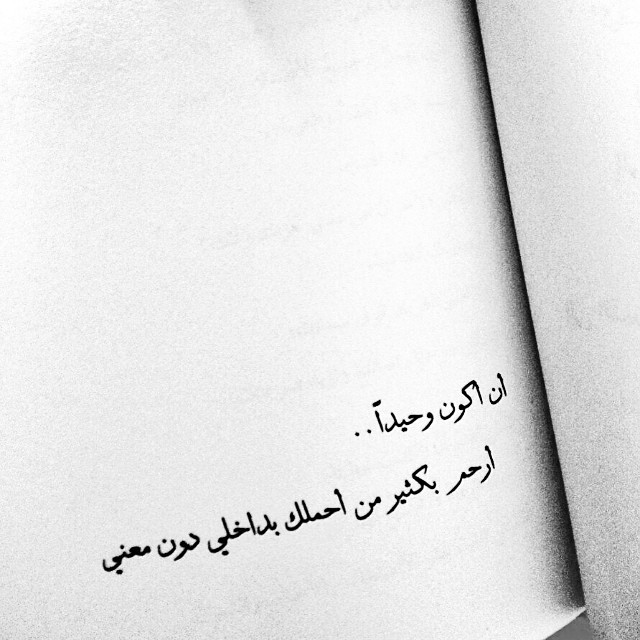 أن اكون وحيداً..
أرحم بكثير من أحملك بداخلي دون معني